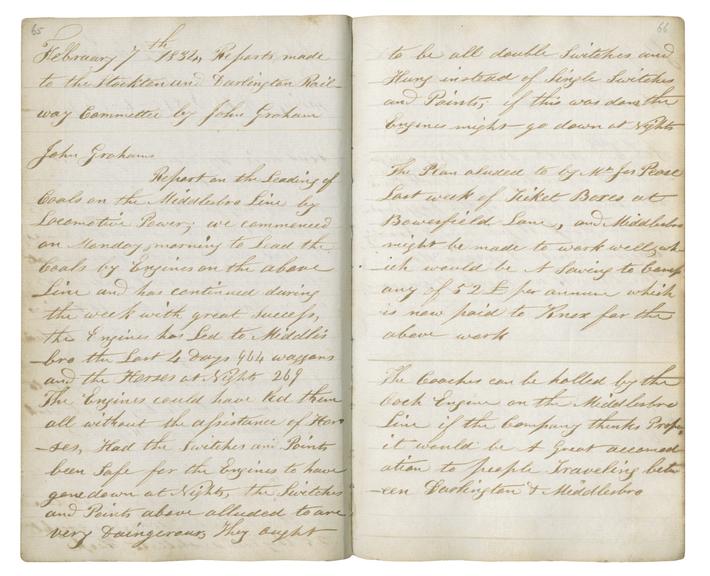 65
February 7th 1834, Reports made
to the Stockton and Darlington Rail-
way Committee by John Graham
John Grahams
Report on the Leading of
Coals on the Middlesbro Line by
Locomotive Power; we commenced
on Monday morning to Lead the
Coals by Engines on the above
Line and has continued during
the week with great success,
the Engines has Led to Middles
-bro the Last 4 Days 464 waggons
and the Horses at Nights 269
The Engines could have led them
all without the assistance of Hor
-ses, Had the Switches and Points
been Safe for the Engines to have
gone down at Nights, the Switches
and Points above alluded to are
very Daingerous, They ought
66
to be all double Switches and
Hung instead of Single Switches
and Points; if this was done the
Engines might go down at Nights
The Plan aluded to by Mr Jos Pease
Last week of Ticket Boxes at
Bowesfield Lane, and Middlesbro
might be made to work well, wh
ich would be A Saving to Comp
any of 52 £ per annum which
is now paid to Knox for the
above work
The Coaches can be halled by the
Cock Engine on the Middlesbro
Line if the Company thinks Proper,
it would be A Great accomod
ation to people Traveling betw
-een Darlington & Middlesbro